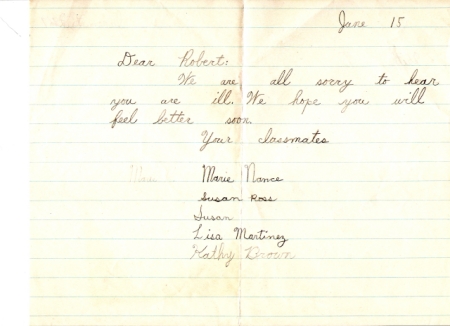 June 15
Dear Robert:
We are all sorry to hear
you are ill. We hope you will
feel better soon.
Your classmates
Marie Nance
Susan Ross
Susan
Lisa Martinez
Kathy Brown